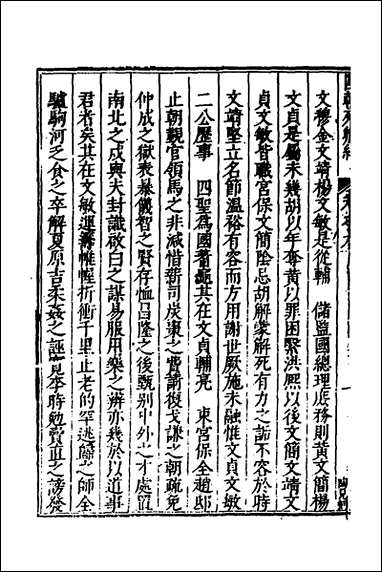 國朝列卿紀
文穆金文靖楊文敏是從輔　儲監國總理庶務則黃文簡楊
文貞是屬未幾胡以年卒黃以罪囚繫洪熙以後文簡文靖文
貞文敏皆職宮保文簡陰忌胡解棠解死有力之謡不容於時
文靖堅立名節溫裕有容而方用謝世厥施未融惟文貞文敏
二公歷事　四聖為國蓍龜其在文貞輔亮　東宮保全趙邸
止朝觀官領馬之非減惜薪司炭棗之費諭復戈謙之朝疏免
仲成之獄表綦儀智之賢存恤呂隆之後甄別中外之才處置
南北之戍與夫封識啟白之謀易服用樂之辨亦幾於以道事
君者矣其在文敏運籌帷幄折衝千里止老的罕逃竄之師全
驢駒河乏食之卒解夏原吉柔姦之誣寬李時勉賣直之謗發